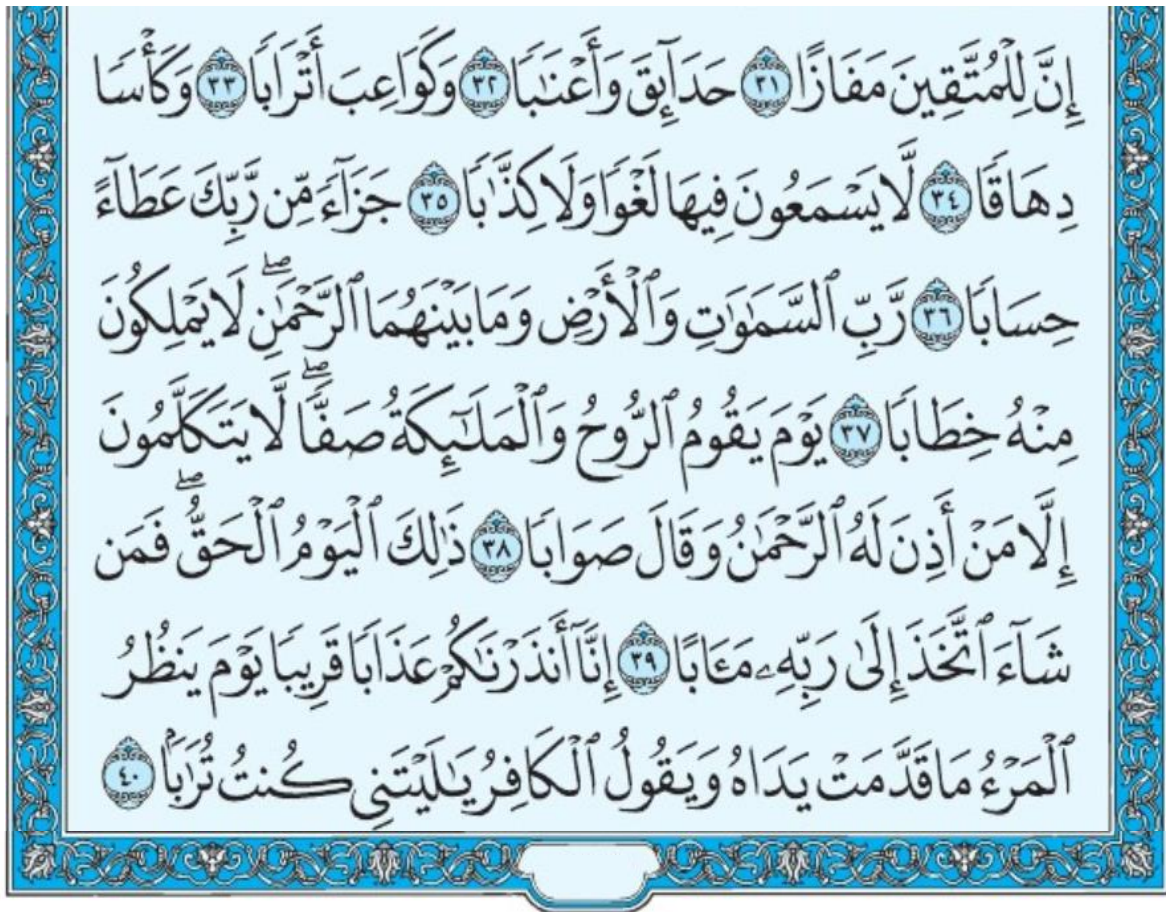 إِنَّ لِلْمُتَّقِينَ مَفَازًا ٣١ حَدَآئِقَ وَأَعْنَٰبٗا ٣٢ وَكَوَاعِبَ أَتۡرَابٗا ٣٣ وَكَأۡسٗا
دِهَاقٗا ٣٤ لَّا يَسۡمَعُونَ فِيهَا لَغۡوٗا وَلَا كِذَّٰبٗا ٣٥ جَزَآءٗ مِّن رَّبِّكَ عَطَآءً
حِسَابٗا ٣٦ رَّبِّ ٱلسَّمَٰوَٰتِ وَٱلۡأَرۡضِ وَمَا بَيۡنَهُمَا ٱلرَّحۡمَٰنِۖ لَا يَمۡلِكُونَ
مِنۡهُ خِطَابٗا ٣٧ يَوۡمَ يَقُومُ ٱلرُّوحُ وَٱلۡمَلَٰٓئِكَةُ صَفّٗاۖ لَّا يَتَكَلَّمُونَ
إِلَّا مَنۡ أَذِنَ لَهُ ٱلرَّحۡمَٰنُ وَقَالَ صَوَابٗا ٣٨ ذَٰلِكَ ٱلۡيَوۡمُ ٱلۡحَقُّۖ فَمَن
شَآءَ ٱتَّخَذَ إِلَىٰ رَبِّهِۦ مَـَٔابًا ٣٩ إِنَّآ أَنذَرۡنَٰكُمۡ عَذَابٗا قَرِيبٗا يَوۡمَ يَنظُرُ
ٱلۡمَرۡءُ مَا قَدَّمَتۡ يَدَاهُ وَيَقُولُ ٱلۡكَافِرُ يَٰلَيۡتَنِي كُنتُ تُرَٰبَۢا ٤٠